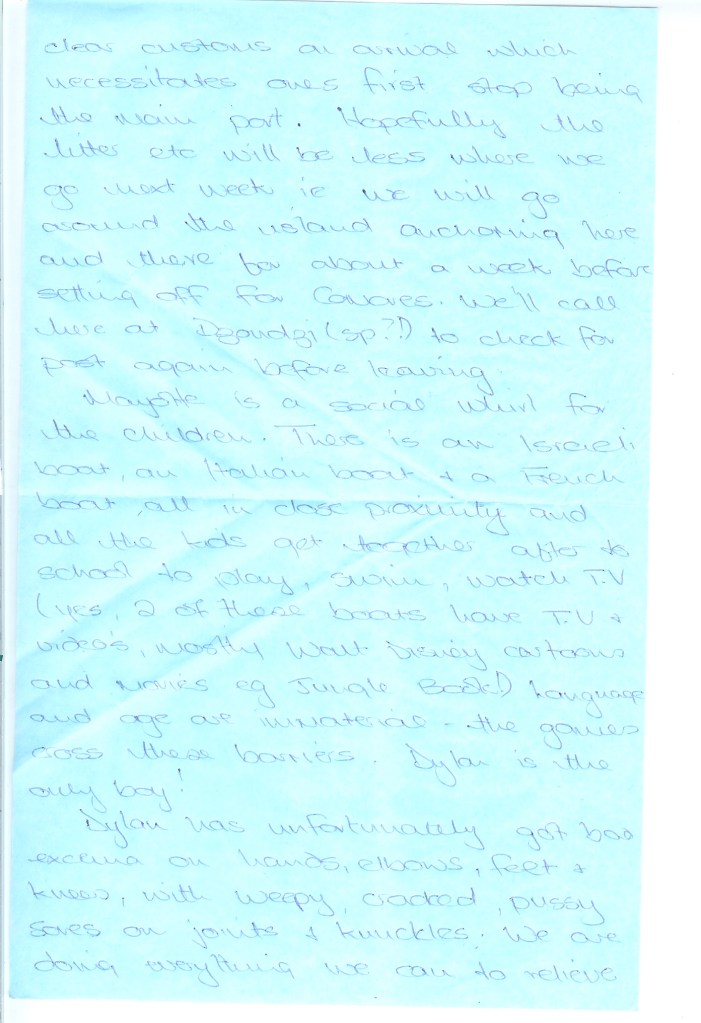 clear customs on arrival which
necessitates ones first stop being
the main port. Hopefully the
litter etc will be less where we
go next week ie we will go
around the island anchoring here
and there for about a week before
setting off for Comores. We'll call
here at Dzoudzi (sp?!) to check for
post again before leaving.
Mayotte is a social whirl for
the children. There is an Israeli
boat, an Italian boat & a French
boat, all in close proximity and
all the kids get together after
school to play, swim, watch T.V
(yes, 2 of these boats have T.V &
video's, mostly Walt Disney cartoons
and movies eg Jungle Book!) Language
and age are immaterial - the games
cross these barriers. Dylan is the
only boy!
Dylan has unfortunately got bad
excema on hands, elbows, feet &
knees, with weepy, cracked, pussy
sores on joints & knuckles. We are
doing everything we can to relieve